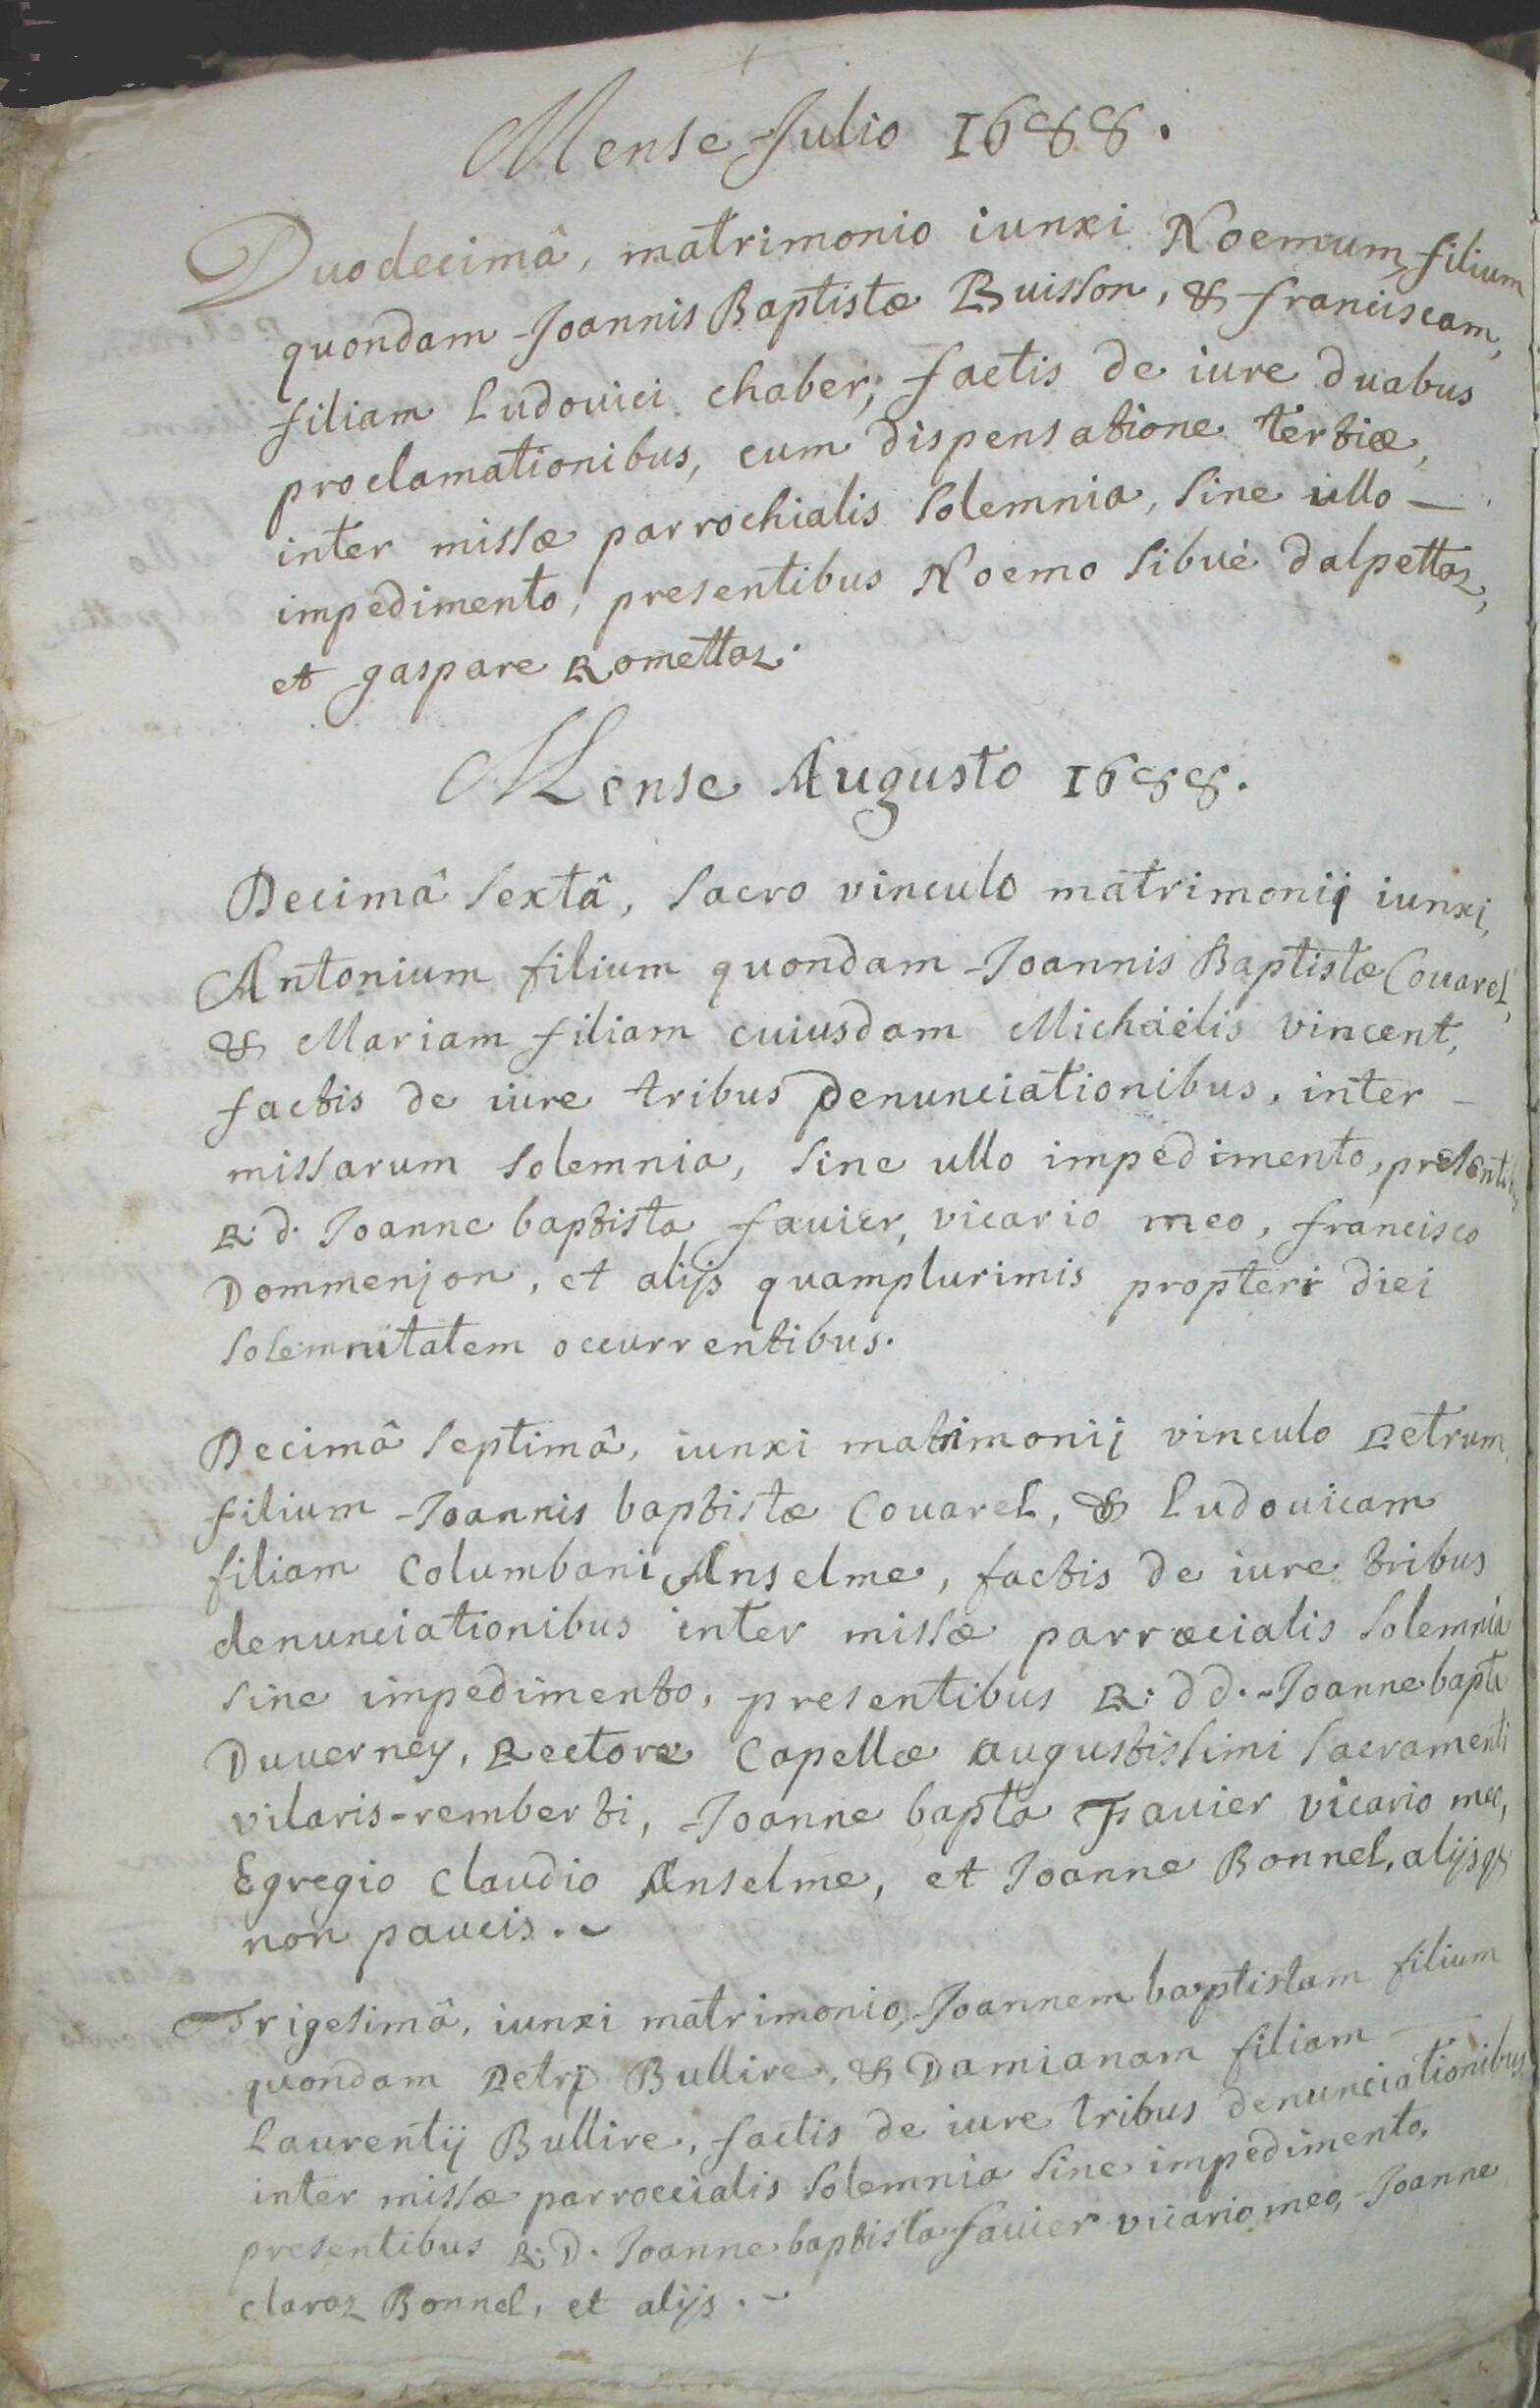 Mense Julio 1688.
Duodecimâ, matrimonio iunxi Noemum filium
quondam Joannis Baptistæ Buisson, & franciscam,
filiam Ludouici chaber; factis de iure duabus
proclamationibus, cum dispensatione tertiæ,
inter missæ parrochialis solemnia, sine ullo —
impedimento, presentibus Noemo sibué dalpettaz,
et gaspare Romettaz.
Mense Augusto 1688.
Decimâ sextâ, sacro vinculo matrimonij iunxi,
Antonium filium quondam Joannis Baptistæ Couarel,
& Mariam filiam cuiusdam Michaëlis vincent,
factis de iure tribus denunciationibus, inter —
missarum solemnia, sine ullo impedimento, presentibus
R: d. Joanne baptista fauier, vicario meo, francisco
Dommenjon, et alijs quamplurimis propter diei
solemnitatem occurrentibus.
Decimâ septimâ, iunxi matrimonij vinculo Petrum
filium Joannis baptistæ Couarel, & Ludouicam
filiam Columbani Anselme, factis de iure tribus
denunciationibus inter missæ parrœcialis solemnia
sine impedimento, presentibus R: dd. Joanne bapta
Duuerney, Rectore Capellæ augustissimi sacramenti
vilaris-remberti, Joanne bapta Fauier vicario meo,
Egregio Claudio Anselme, et Joanne Bonnel, alijsq;
non paucis. ~
Trigesimâ, iunxi matrimonio, Joannem baptistam filium
quondam Petri Bullire, & Damianam filiam —
Laurentij Bullire, factis de iure tribus denunciationibus
inter missæ parroccialis solemnia sine impedimento,
presentibus R: D. Joanne baptista fauier vicario meo, Joanne
claraz Bonnel, et alijs. ~